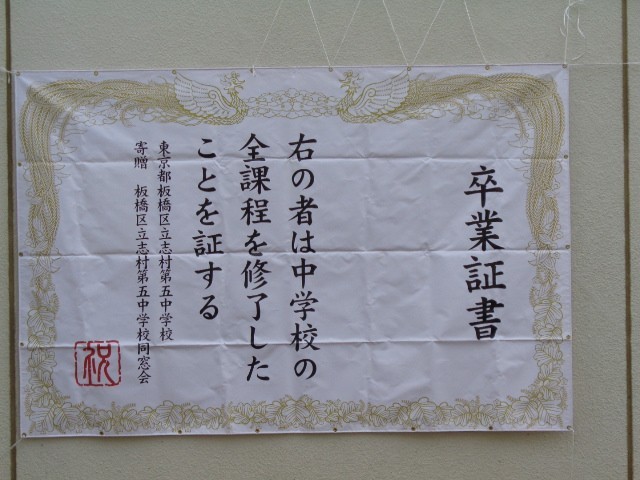 卒業証書
右の者は中学校の
全課程を修了した
ことを証する
東京都板橋区立志村第五中学校
寄贈 板橋区立志村第五中学校同窓会
祝